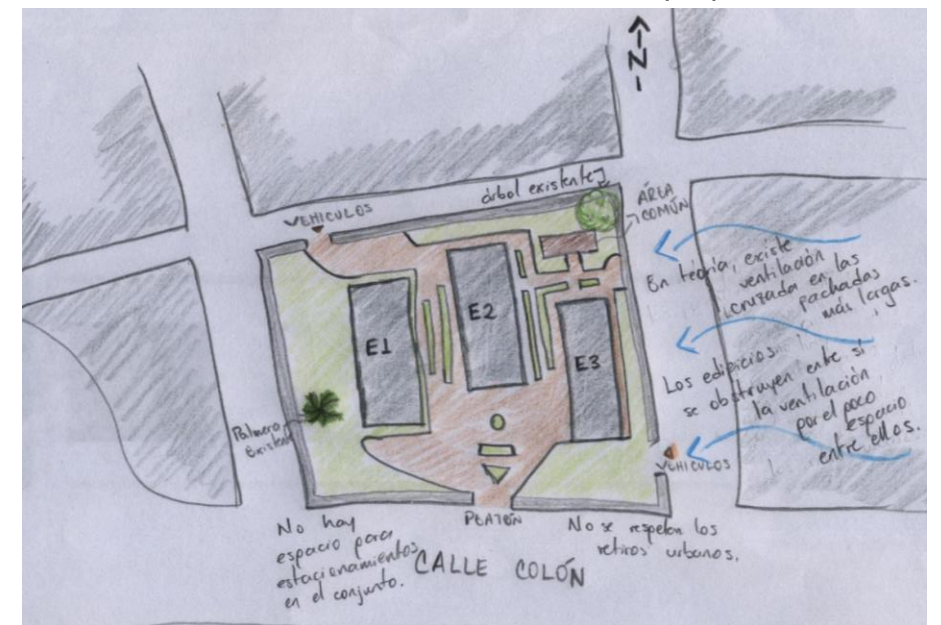 N
árbol existente
ÁREA
COMÚN
VEHICULOS
En teoría, existe
ventilación
cruzada en las
fachadas
más largas.
E1
E2
E3
Los edificios
se obstruyen entre sí
la ventilación
por el poco
espacio
entre ellos.
Palmera
Existente
VEHICULOS
PEATÓN
No hay
espacio para
estacionamientos
en el conjunto.
No se respetan los
retiros urbanos.
CALLE COLÓN